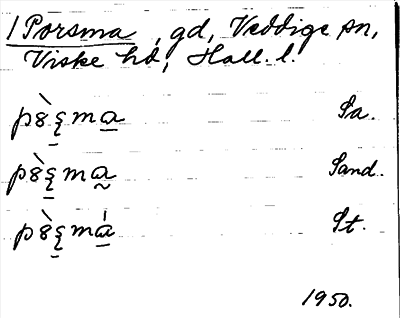 1 Porsma, gd, Veddige sn,
Viske hd, Hall. l.
pȣ̀ʂma Sa.
pȣ̀ʂma Sand.
pȣ̀ʂmá St.
1950.